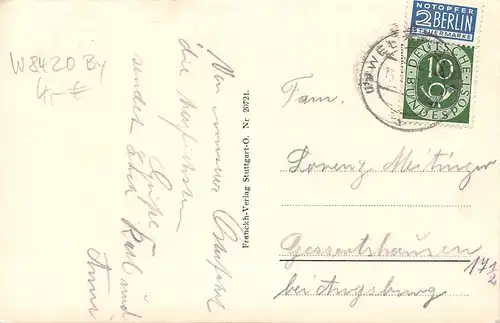 W 8420 By
4,- €
Von unserer Busfahrt
die herzlichsten
Grüße
sendet Euch Karl und
Anni
Franckh-Verlag Stuttgart-O. Nr. 20721.
NOTOPFER
2 BERLIN
STEUERMARKE
DEUTSCHE
10
BUNDESPOST
Fam.
Lorenz Meitinger
Gessertshausen
bei Augsburg